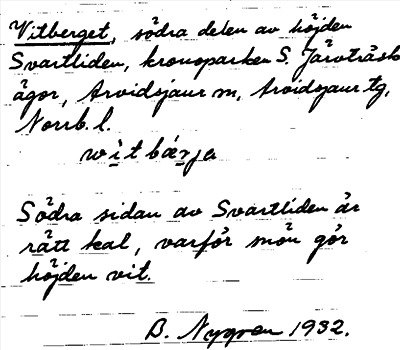 Vitberget, södra delen av höjden
Svartliden, kronoparken S. Järvträsk
ägor, Arvidsjaur sn, Arvidsjaur tg,
Norrb. l.
witbærja
Södra sidan av Svartliden är
rätt kal, varför snön gör
höjden vit.
B. Nygren 1932.